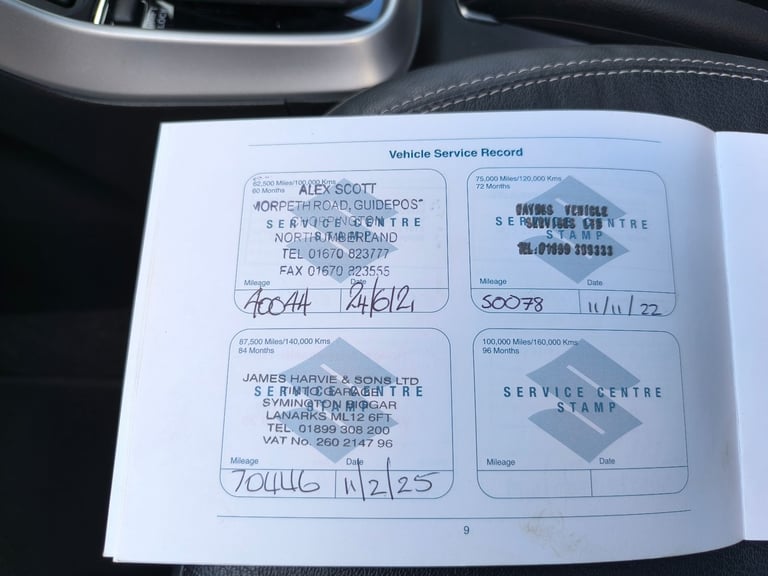 Vehicle Service Record
62,500 Miles/100,000 Kms
60 Months
ALEX SCOTT
MORPETH ROAD, GUIDEPOS
CHOPPINGTON
SERVICE CENTRE
STAMP
NORTHUMBERLAND
TEL 01670 823777
FAX 01670 823555
Mileage
Date
40044
24/6/21
75,000 Miles/120,000 Kms
72 Months
VEHICLE
SERVICE CENTRE
SERVICES LTD
STAMP
TEL:01899 309333
Mileage
Date
50078
11/11/22
87,500 Miles/140,000 Kms
84 Months
JAMES HARVIE & SONS LTD
SERVICE CENTRE
TINTO GARAGE
STAMP
SYMINGTON BIGGAR
LANARKS ML12 6FT
TEL. 01899 308 200
VAT No. 260 2147 96
Mileage
Date
70446
11/2/25
100,000 Miles/160,000 Kms
96 Months
SERVICE CENTRE
STAMP
Mileage
Date
9